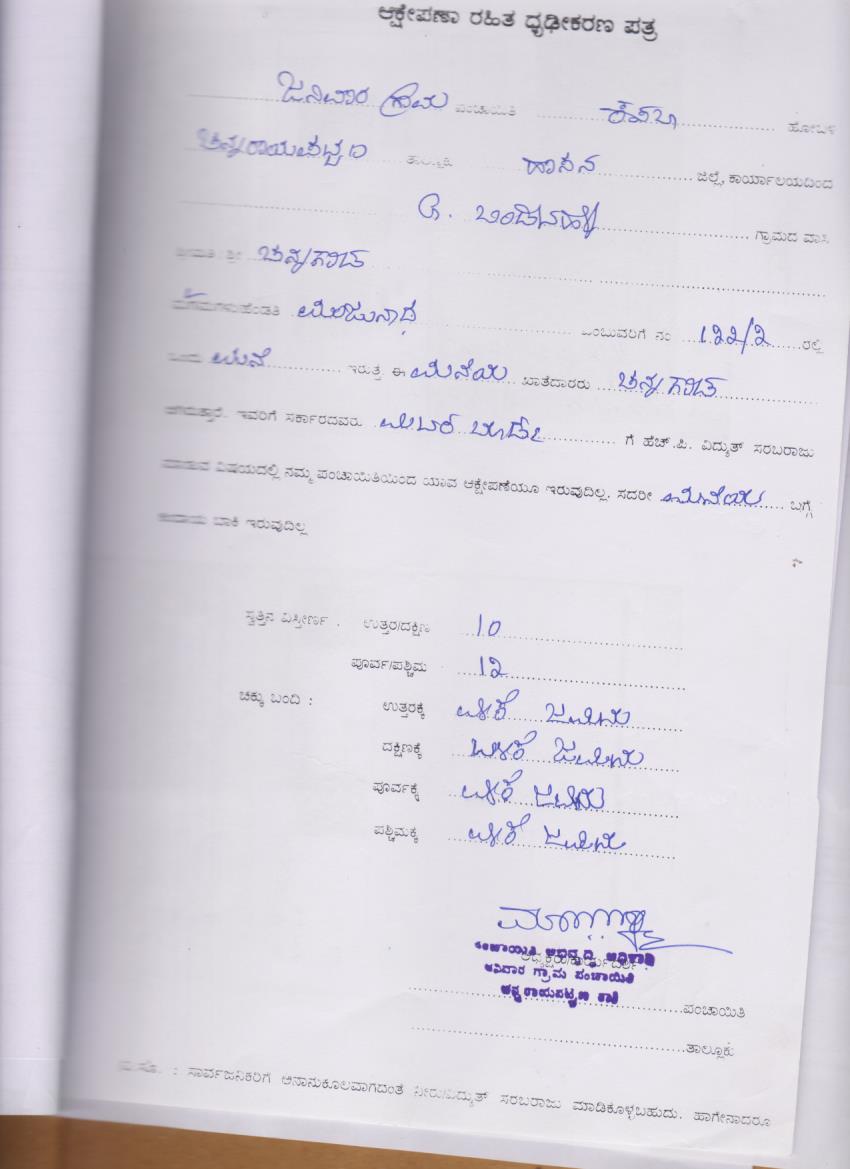 ಆಕ್ಷೇಪಣಾ ರಹಿತ ಧೃಢೀಕರಣ ಪತ್ರ
ಜನಿವಾರ ಗ್ರಾಮ ಪಂಚಾಯಿತಿ ಕಸಬಾ ಹೋಬಳಿ
ಚನ್ನರಾಯಪಟ್ಟಣ ತಾಲ್ಲೂಕು ಹಾಸನ ಜಿಲ್ಲೆ, ಕಾರ್ಯಾಲಯದಿಂದ
ಗ್ರಾಮದ ವಾಸಿ
ಶ್ರೀಮತಿ/ಶ್ರೀ
ಮಗ/ಮಗಳು/ಹೆಂಡತಿ ಮಂಜುನಾಥ ಎಂಬುವರಿಗೆ ನಂ 122/2 ರಲ್ಲಿ
ಒಂದು ಮನೆ ಇರುತ್ತೆ ಈ ಮನೆಯ ಖಾತೆದಾರರು
ಆಗಿರುತ್ತಾರೆ. ಇವರಿಗೆ ಸರ್ಕಾರದವರು ಗೆ ಹೆಚ್.ಪಿ. ವಿದ್ಯುತ್ ಸರಬರಾಜು
ಮಾಡುವ ವಿಷಯದಲ್ಲಿ ನಮ್ಮ ಪಂಚಾಯಿತಿಯಿಂದ ಯಾವ ಆಕ್ಷೇಪಣೆಯೂ ಇರುವುದಿಲ್ಲ. ಸದರೀ ಮನೆಯ ಬಗ್ಗೆ
ಕಂದಾಯ ಬಾಕಿ ಇರುವುದಿಲ್ಲ
ಸ್ವತ್ತಿನ ವಿಸ್ತೀರ್ಣ : ಉತ್ತರ/ದಕ್ಷಿಣ 10
ಪೂರ್ವ/ಪಶ್ಚಿಮ 12
ಚಕ್ಕು ಬಂದಿ : ಉತ್ತರಕ್ಕೆ ಜಮೀನು
ದಕ್ಷಿಣಕ್ಕೆ ಜಮೀನು
ಪೂರ್ವಕ್ಕೆ ಜಮೀನು
ಪಶ್ಚಿಮಕ್ಕೆ ಜಮೀನು
ಪಂಚಾಯಿತಿ ಅಭಿವೃದ್ಧಿ ಅಧಿಕಾರಿ
ಜನಿವಾರ ಗ್ರಾಮ ಪಂಚಾಯಿತಿ
ಚನ್ನರಾಯಪಟ್ಟಣ ತಾ||
ಪಂಚಾಯಿತಿ
ತಾಲ್ಲೂಕು
ವಿ.ಸೂ. : ಸಾರ್ವಜನಿಕರಿಗೆ ಅನಾನುಕೂಲವಾಗದಂತೆ ನೀರು/ವಿದ್ಯುತ್ ಸರಬರಾಜು ಮಾಡಿಕೊಳ್ಳಬಹುದು. ಹಾಗೇನಾದರೂ